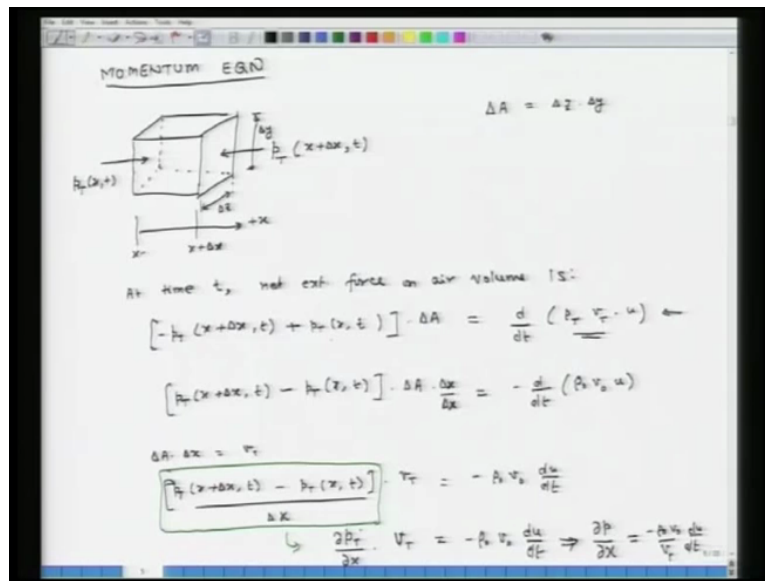 MOMENTUM EQN
ΔA = Δz · Δy
Δy
p_T (x+Δx, t)
p_T(x,t)
Δz
+x
x
x+Δx
At time t, net ext force on air volume is:
[-p_T (x+Δx, t) + p_T (x, t)] · ΔA = d/dt (ρ_T V_T · u) ←
[p_T (x+Δx, t) - p_T (x, t)] · ΔA · Δx/Δx = - d/dt (ρ₀ V₀ u)
ΔA · Δx = V_T
[p_T (x+Δx, t) - p_T (x, t)]/Δx · V_T = - ρ₀ V₀ du/dt
↳ ∂p_T/∂x · V_T = -ρ₀ V₀ du/dt ⇒ ∂p/∂x = -ρ₀ V₀/V_T du/dt